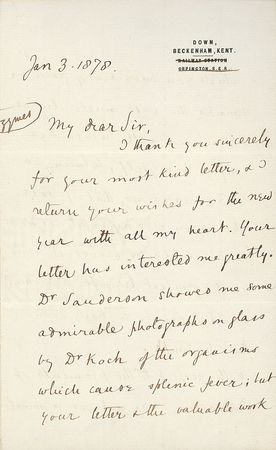 DOWN,
BECKENHAM, KENT.
RAILWAY STATION
ORPINGTON. S.E.R.
Jan 3. 1878.
My dear Sir,
I thank you sincerely
for your most kind letter, & I
return your wishes for the new
year with all my heart. Your
letter has interested me greatly.
Dr Sanderson showed me some
admirable photographs on glass
by Dr Koch of the organisms
which cause splenic fever; but
your letter & the valuable work